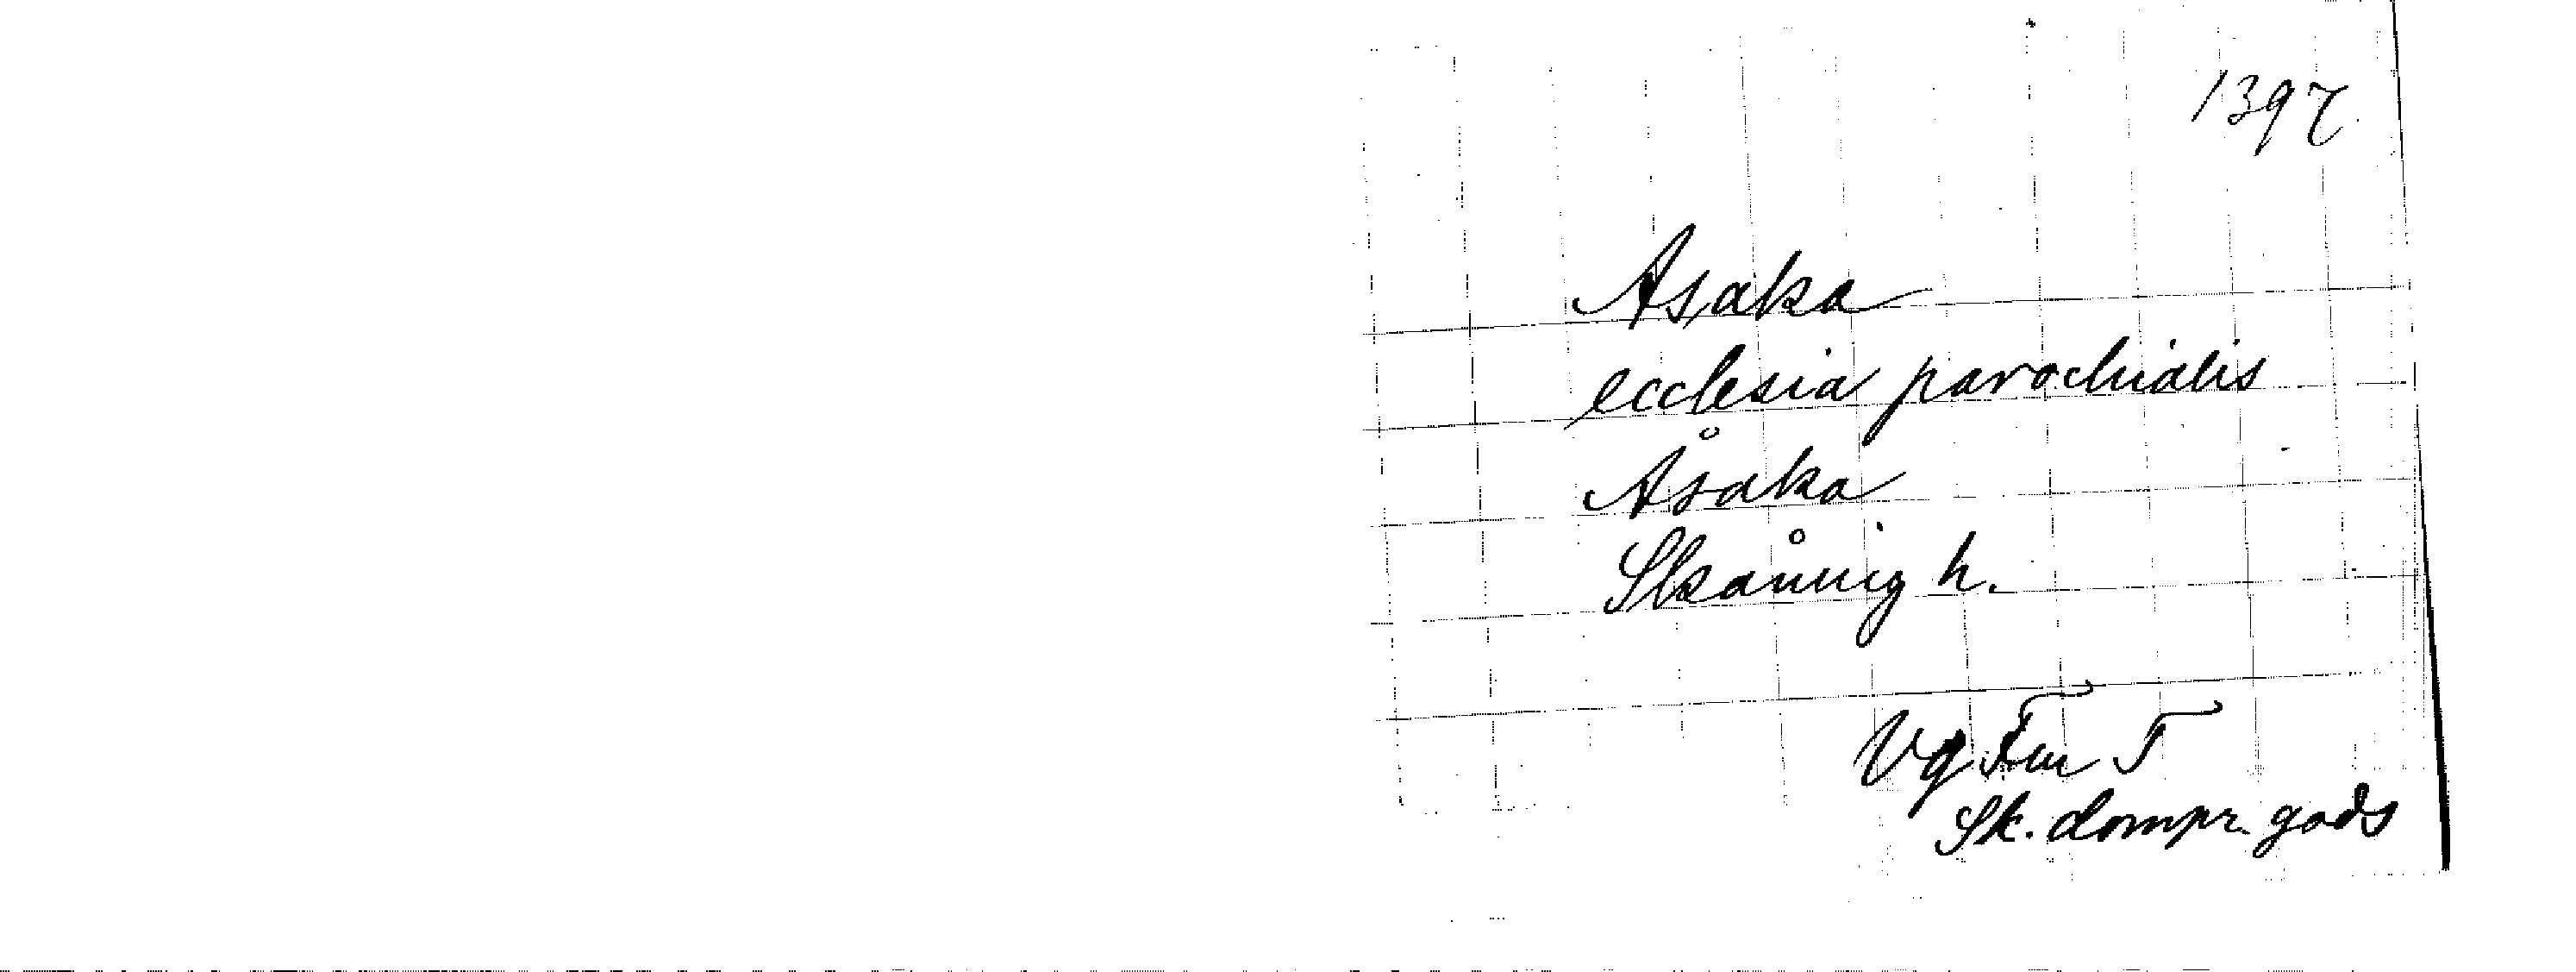 1397
Asaka
ecclesia parochialis
Åsaka
Skånnig h.
Vg Fm T
Sk. dompr. gods